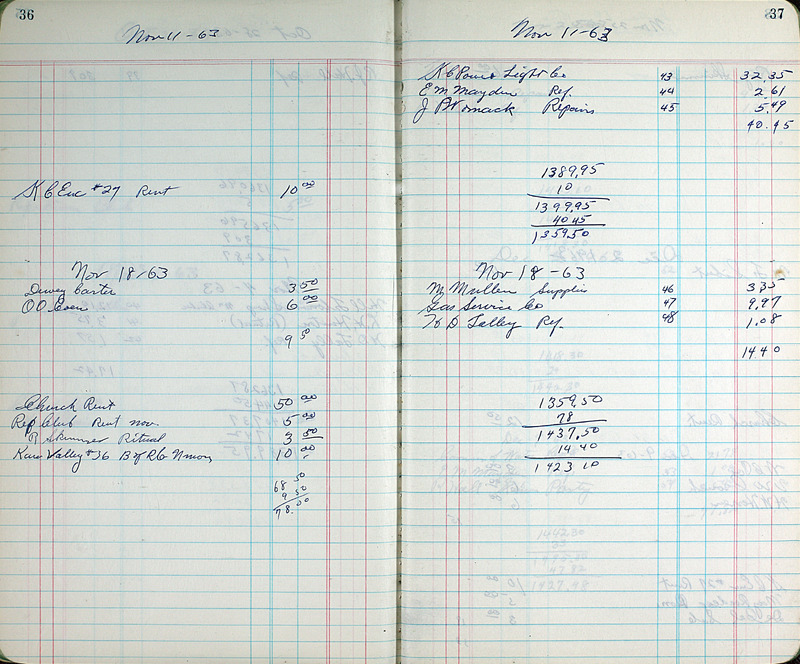 36
Nov 11-63
K C Enc #27 Rent 10 00
Nov 18-63
Dewey Carter 3 50
O O 6 00
9 50
Church Rent 50 00
Rep Club Rent nov. 5 00
R Skinner Ritual 3 50
Kaw Valley #36 B of R C N 10 00
68 50
9 50
78.00
37
Nov 11-63
K C Power Light Co 43 32.35
E M Mayden Ref. 44 2.61
J P Womack Repairs 45 5.49
40.45
1389.95
10
1399.95
40 45
1359.50
Nov 18-63
Mc Mullen Supplies 46 3.35
Gas Service Co 47 9.97
H D Talley Ref. 48 1.08
14 40
1359.50
78
1437.50
14 40
1423 10